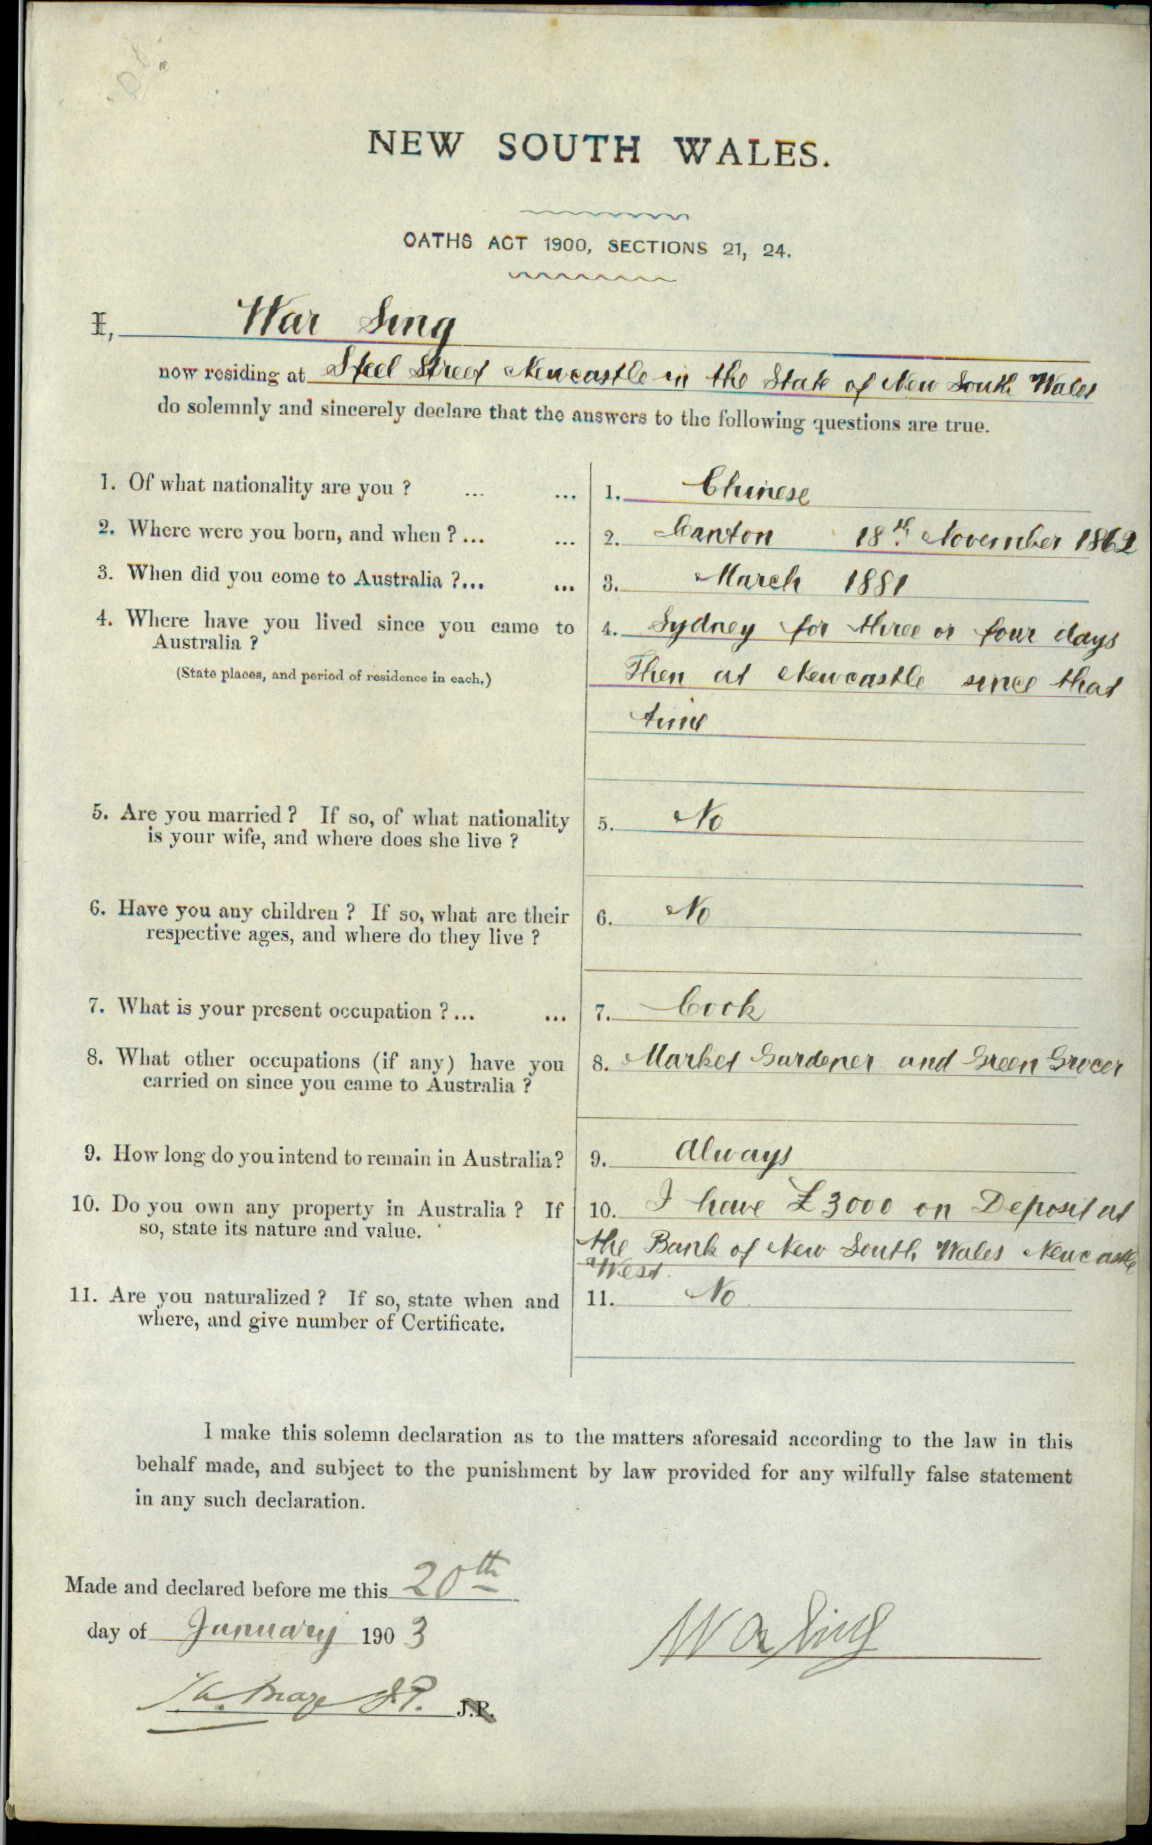 NEW SOUTH WALES.
OATHS ACT 1900, SECTIONS 21, 24.
I, War Sing
now residing at Steel Street Newcastle in the State of New South Wales
do solemnly and sincerely declare that the answers to the following questions are true.
1. Of what nationality are you ? ... ... 1. Chinese
2. Where were you born, and when ? ... ... 2. Canton 18th November 1862
3. When did you come to Australia ?... ... 3. March 1881
4. Where have you lived since you came to 4. Sydney for three or four days
Australia ?
(State places, and period of residence in each.) Then at Newcastle since that
time
5. Are you married ? If so, of what nationality 5. No
is your wife, and where does she live ?
6. Have you any children ? If so, what are their 6. No
respective ages, and where do they live ?
7. What is your present occupation ? ... ... 7. Cook
8. What other occupations (if any) have you 8. Market Gardener and Green Grocer
carried on since you came to Australia ?
9. How long do you intend to remain in Australia? 9. Always
10. Do you own any property in Australia ? If 10. I have £3000 on Deposit at
so, state its nature and value. the Bank of New South Wales Newcastle
West.
11. Are you naturalized ? If so, state when and 11. No
where, and give number of Certificate.
I make this solemn declaration as to the matters aforesaid according to the law in this
behalf made, and subject to the punishment by law provided for any wilfully false statement
in any such declaration.
Made and declared before me this 20th
day of January 1903
War Sing
J.P. J.P.